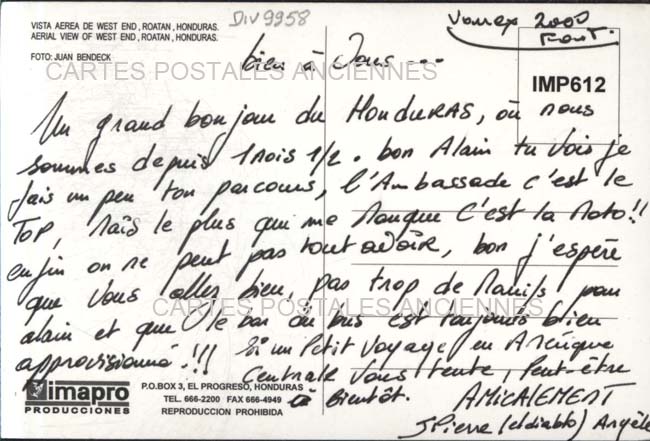 VISTA AEREA DE WEST END, ROATAN, HONDURAS.
AERIAL VIEW OF WEST END, ROATAN, HONDURAS.
FOTO: JUAN BENDECK
DIV9958
2000
IMP612
CARTES POSTALES ANCIENNES
bien à Vous ---
Un grand bonjour du HONDURAS, où nous
sommes depuis 1 mois 1/2. bon Alain tu vois je
fais un peu ton parcours, l'Ambassade c'est le
TOP, Mais le plus qui me Manque C'est ta Moto!!
enfin on ne peut pas tout AVOIR, bon j'espère
que Vous allez bien, pas trop de pour
CARTES POSTALES ANCIENNES
alain et que le bar du bus est toujours bien
approvisionné!!! Si un Petit Voyage en Amérique
Centrale Vous tente, Peut-être
à Bientôt. AMICALEMENT
J.Pierre (el diablo) Angèle
imapro
PRODUCCIONES
P.O.BOX 3, EL PROGRESO, HONDURAS
TEL. 666-2200 FAX 666-4949
REPRODUCCION PROHIBIDA